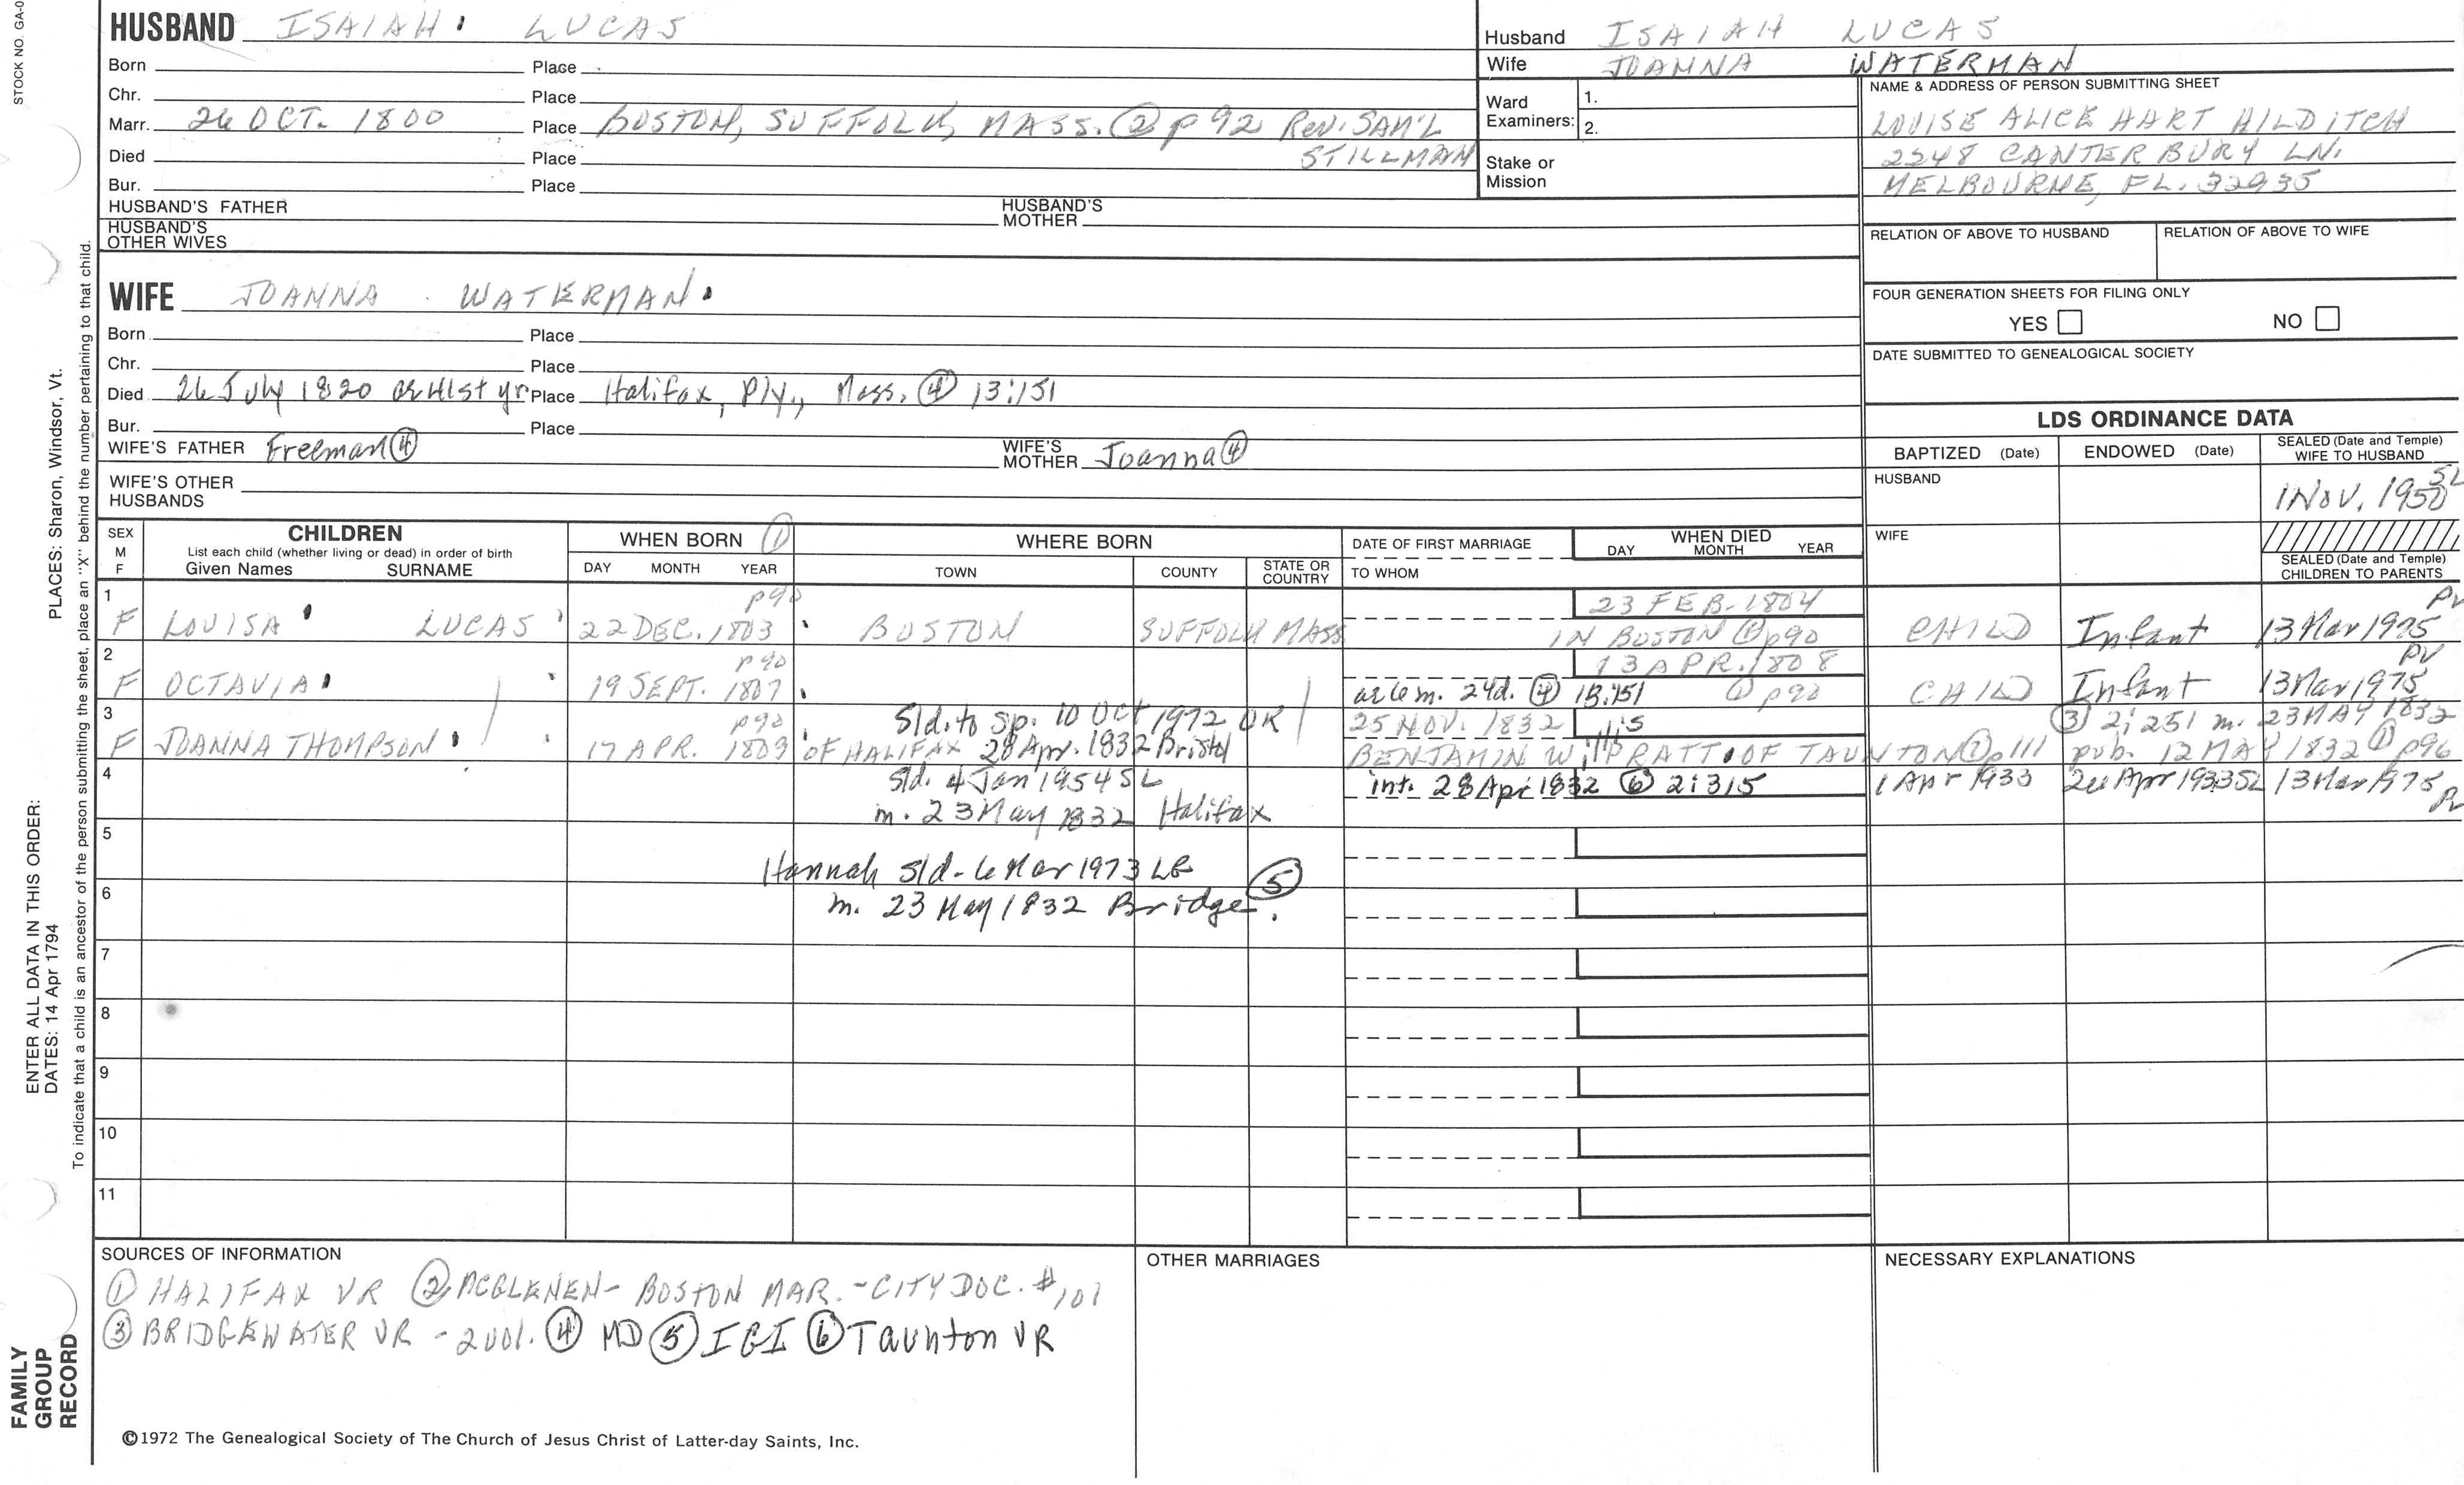 STOCK NO. GA-0
HUSBAND ISAIAH LUCAS
Husband ISAIAH LUCAS
Born Place
Wife JOANNA WATERMAN
Chr. Place
Marr. 26 OCT. 1800 Place BOSTON, SUFFOLK, MASS. ② p 92 REV. SAM'L STILLMAN
Died Place
Bur. Place
HUSBAND'S FATHER HUSBAND'S MOTHER
HUSBAND'S OTHER WIVES
Ward Examiners: 1.
2.
Stake or Mission
NAME & ADDRESS OF PERSON SUBMITTING SHEET
LOUISE ALICE HART HILDITCH
2248 CANTERBURY LN.
MELBOURNE, FL. 32935
RELATION OF ABOVE TO HUSBAND RELATION OF ABOVE TO WIFE
FOUR GENERATION SHEETS FOR FILING ONLY
YES NO
DATE SUBMITTED TO GENEALOGICAL SOCIETY
WIFE JOANNA WATERMAN
Born Place
Chr. Place
Died 26 July 1820 41st yr Place Halifax, Ply., Mass. ④ 13:151
Bur. Place
WIFE'S FATHER Freeman ④ WIFE'S MOTHER Joanna ④
WIFE'S OTHER HUSBANDS
LDS ORDINANCE DATA
BAPTIZED (Date) ENDOWED (Date) SEALED (Date and Temple) WIFE TO HUSBAND
HUSBAND 1 NOV. 1950 SL
WIFE
SEALED (Date and Temple) CHILDREN TO PARENTS
SEX M F CHILDREN WHEN BORN ① WHERE BORN DATE OF FIRST MARRIAGE WHEN DIED
List each child (whether living or dead) in order of birth
Given Names SURNAME DAY MONTH YEAR TOWN COUNTY STATE OR COUNTRY TO WHOM DAY MONTH YEAR
1 p90 23 FEB. 1804 PV
F LOUISA LUCAS 22 DEC. 1803 BOSTON SUFFOLK MASS IN BOSTON ① p90 CHILD Infant 13 Mar 1975
2 p90 13 APR. 1808 PV
F OCTAVIA 19 SEPT. 1807 ae 6 m. 24d. ④ 13:151 ① p90 CHILD Infant 13 Mar 1975
3 p90 Sld. to sp. 10 Oct 1972 OK 25 NOV. 1832 ③ 2:251 m. 23 MAY 1832
F JOANNA THOMPSON 17 APR. 1809 OF HALIFAX 28 Apr. 1832 Bristol BENJAMIN W. PRATT OF TAUNTON ① p111 pub. 12 MAY 1832 ① p96
4 Sld. 4 Jan 1954 SL int. 28 Apr 1832 ⑥ 2:315 1 Apr 1933 26 Apr 1933 SL 13 Mar 1975 PV
m. 23 May 1832 Halifax
5
Hannah Sld. 6 Mar 1973 LG ⑤
6
m. 23 May 1832 Bridge.
7
8
9
10
11
SOURCES OF INFORMATION OTHER MARRIAGES NECESSARY EXPLANATIONS
① HALIFAX VR ② MCGLENEN - BOSTON MAR. - CITY DOC. #101
③ BRIDGEWATER VR - 2 vol. ④ MD ⑤ IGI ⑥ Taunton VR
©1972 The Genealogical Society of The Church of Jesus Christ of Latter-day Saints, Inc.
ENTER ALL DATA IN THIS ORDER:
DATES: 14 Apr 1794 PLACES: Sharon, Windsor, Vt.
To indicate that a child is an ancestor of the person submitting the sheet, place an "X" behind the number pertaining to that child.
FAMILY
GROUP
RECORD